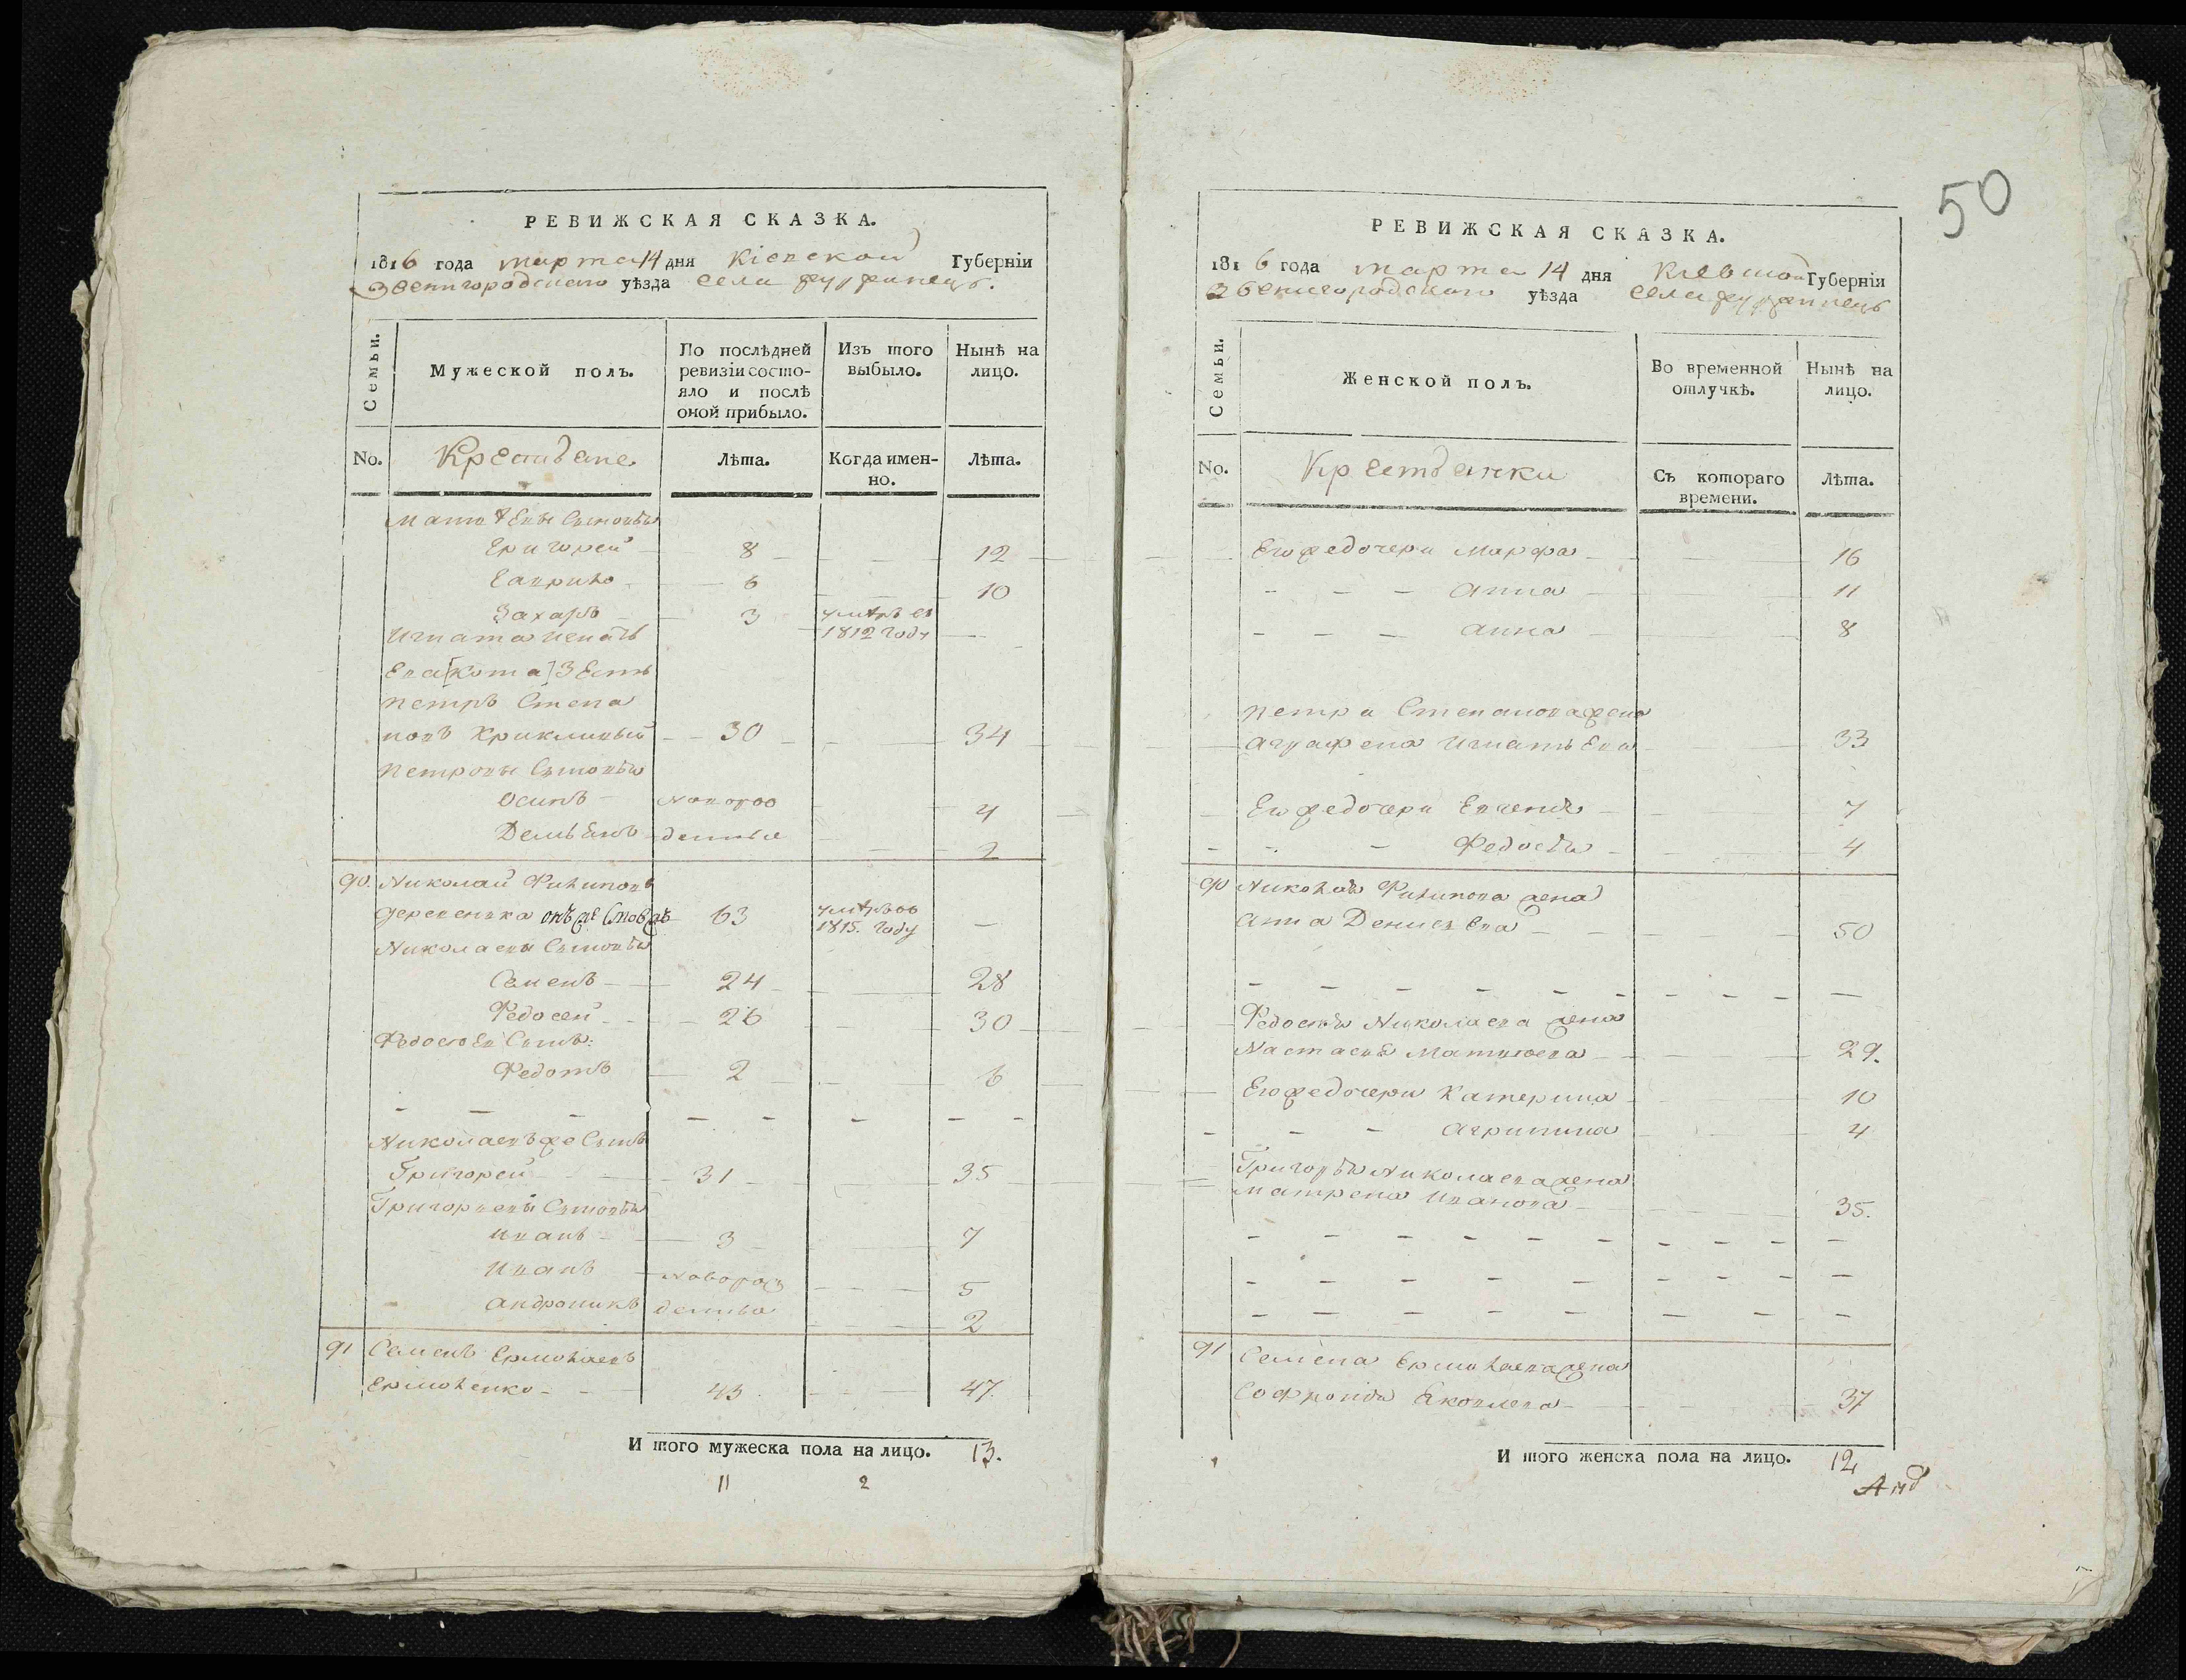 РЕВИЖСКАЯ СКАЗКА.
1816 года марта 14 дня Кіевской Губерніи
Звенигородского уѣзда села
Семьи.
Мужеской полъ.
По послѣдней ревизіи состо-
яло и послѣ
оной прибыло.
Изъ того выбыло.
Нынѣ на лицо.
No.
Крестьяне
Лѣта.
Когда имен-
но.
Лѣта.
Матвѣевы Сыновья
Григорей 8 12
Гаврило 6 10
Захаръ 3 умѣръ въ 1812 году
Игната Игнать
ева [Кота] Зять
Петръ Степа
новъ Крикливый 30 34
Петровы Сыновья
Осипъ новорож 4
Демьянъ денные 2
90. Николай Филиповъ
Деревенька онъ же 63 умѣръ въ 1815. году
Николаевы Сыновья
Семенъ 24 28
Федосей 26 30
Федосеевъ Сынъ:
Федотъ 2 6
Николаевъ же Сынъ
Григорей 31 35
Григорьевы Сыновья
Иванъ 3 7
Иванъ новорож 5
Андроникъ денные 2
91 Семенъ Ермолаевъ
Ермоленко 43 47.
И того мужеска пола на лицо. 13.
11 2
50
РЕВИЖСКАЯ СКАЗКА.
1816 года марта 14 дня Киевской Губерніи
Звенигородского уѣзда села
Семьи.
Женской полъ.
Во временной отлучкѣ.
Нынѣ на лицо.
No.
Крестьянки
Съ котораго времени.
Лѣта.
Его же дочери Марфа 16
Анна 11
Анна 8
Петра Степанова жена
Аграфена Игнатьева 33
Его же дочери Евгенія 7
Федосья 4
90 Николая Филипова жена
Анна Денисьева 50
Федосея Николаева жена
Настасья Матвеева 29.
Его же дочери Катерина 10
Агрипина 4
Григорья Николаева жена
Матрена Иванова 35.
91 Семена Ермолаева жена
Софронія Яковлева 37
И того женска пола на лицо. 12